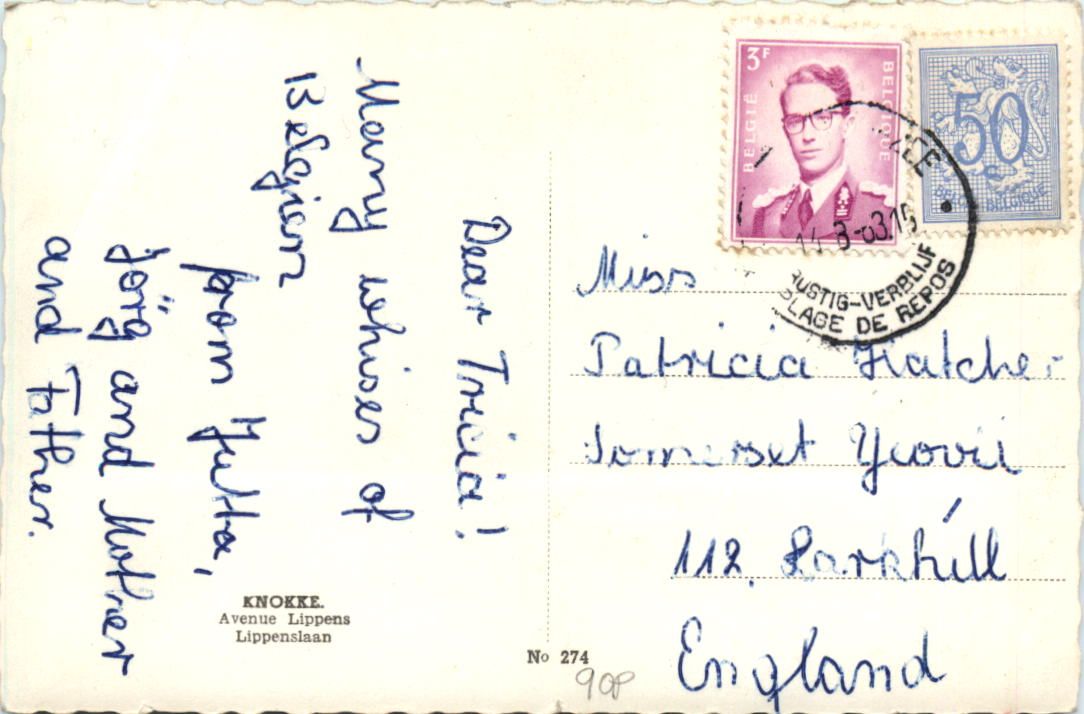 Dear Tricia!
Many whises of
Belgien
from Jutta,
Jörg and Mother
and Father.
KNOKKE.
Avenue Lippens
Lippenslaan
No 274
90P
3F
BELGIË
BELGIQUE
50
BELGIQUE
ZEE
14-8-63.15
RUSTIG-VERBLIJF
PLAGE DE REPOS
Miss
Patricia Hatcher
Somerset Yeovil
112, Larkhill
England